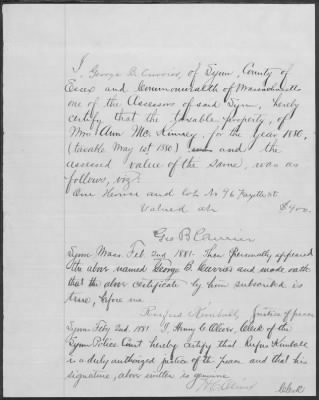 I, George B. Currier, of Lynn, County of
Essex and Commonwealth of Massachusetts
one of the Assessors of said Lynn, hereby
certify that the taxable property, of
Mrs Ann Mc. Kinney for the year 1880,
(taxable May 1st 1880) and the
assessed value of the same, was as
follows, viz:
One House and lot No 96 Fayette St.
Valued at $900.
Geo B Currier
Lynn Mass. Feb 2nd 1881. Then Personally appeared
the above named George B. Currier and made oath
that the above certificate by him subscribed is
true, before me
Rufus Kimball Justice of peace
Lynn Feby 2nd 1881 I Henry C. Oliver, Clerk of the
Lynn Police Court hereby certify that Rufus Kimball
is a duly authorized justice of the Peace and that his
signature, above written is genuine
Clerk